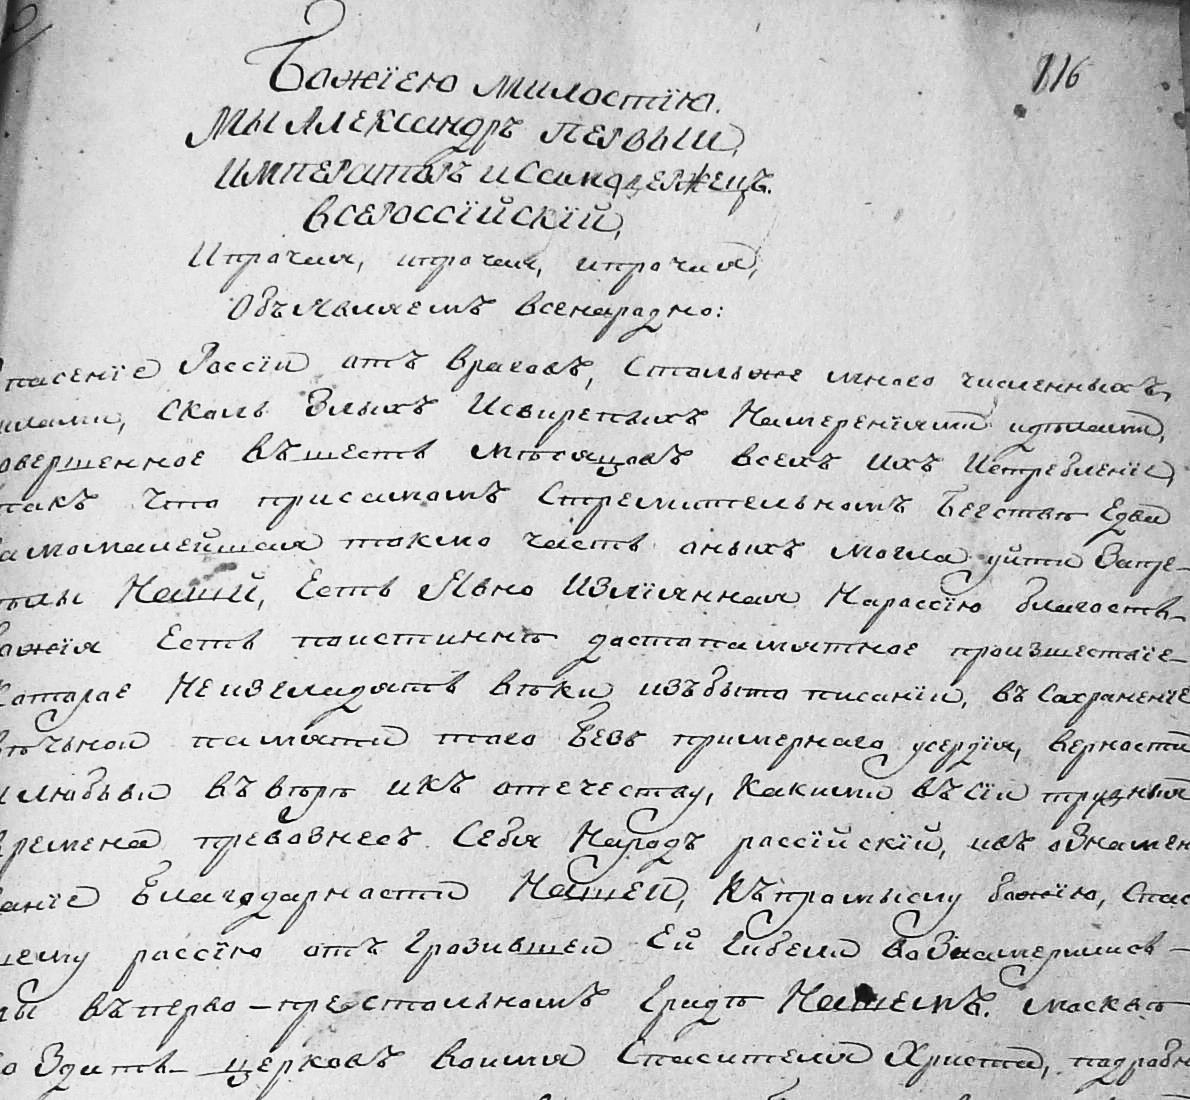 116
Божїею милостїю.
Мы Александръ Первыи,
Императоръ и Самодержецъ.
Всероссїйскїй,
И прочая, и прочая, и прочая,
Объявляемъ всенародно:
пасенїе Россїи отъ враговъ, столь же много численныхъ,
илами, сколь злыхъ и свирепыхъ намеренїями иделами,
овершенное въ шесть месяцовъ всехъ ихъ истребленїе,
такъ что присамомъ стремительномъ бегстве едва
амомалейшая токмо часть оныхъ могла уйти запре-
елы Нашй, есть явно излїянная Нароссїю благость
ожїя есть поистинне достопамятное произшествїе-
которое Неизгладятъ веки изъбыто писанїи, въ сохраненїе
вечьнои памяти того безъ примернаго усердїя, верности
и любьви въ вере икъ отечеству, какими въ сїи трудныя
времена превознесъ себя Народъ россїйскїй, ивъ ознамен
анїе благодарности Нашеи, къ промыслу божїю, спас
шему россїю отъ грозившеи ей гибели вознамерились-
мы въ перво-престольномъ граде Нашемъ. москве
создать церковь воимя Спасителя Христа, подробн